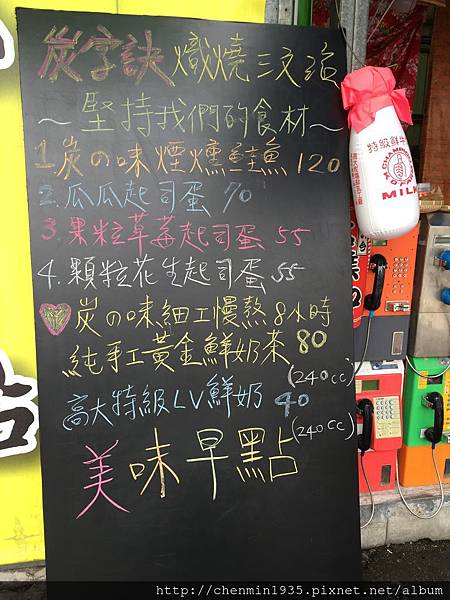 炭字訣 熾燒三文治
～堅持我們的食材～
1.炭の味煙燻鮭魚 120
2.瓜瓜起司蛋 70
3.果粒草莓起司蛋 55
4.顆粒花生起司蛋 55
炭の味細工慢熬8小時
純手工黃金鮮奶茶 80
(240cc)
高大特級LV鮮奶 40
(240cc)
美味早點
特級鮮牛
MILK
http://chenmin1935.pixnet.net/album